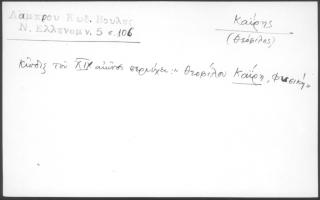 Λάμπρου Κωδ. Βουλης
Ν. Ελληνομν. 5 σ. 106
Καΐρης
(Θεόφιλος)
Κώδιξ του XIX αιώνος περιέχει: "Θεοφίλου Καΐρη, Φυσική"